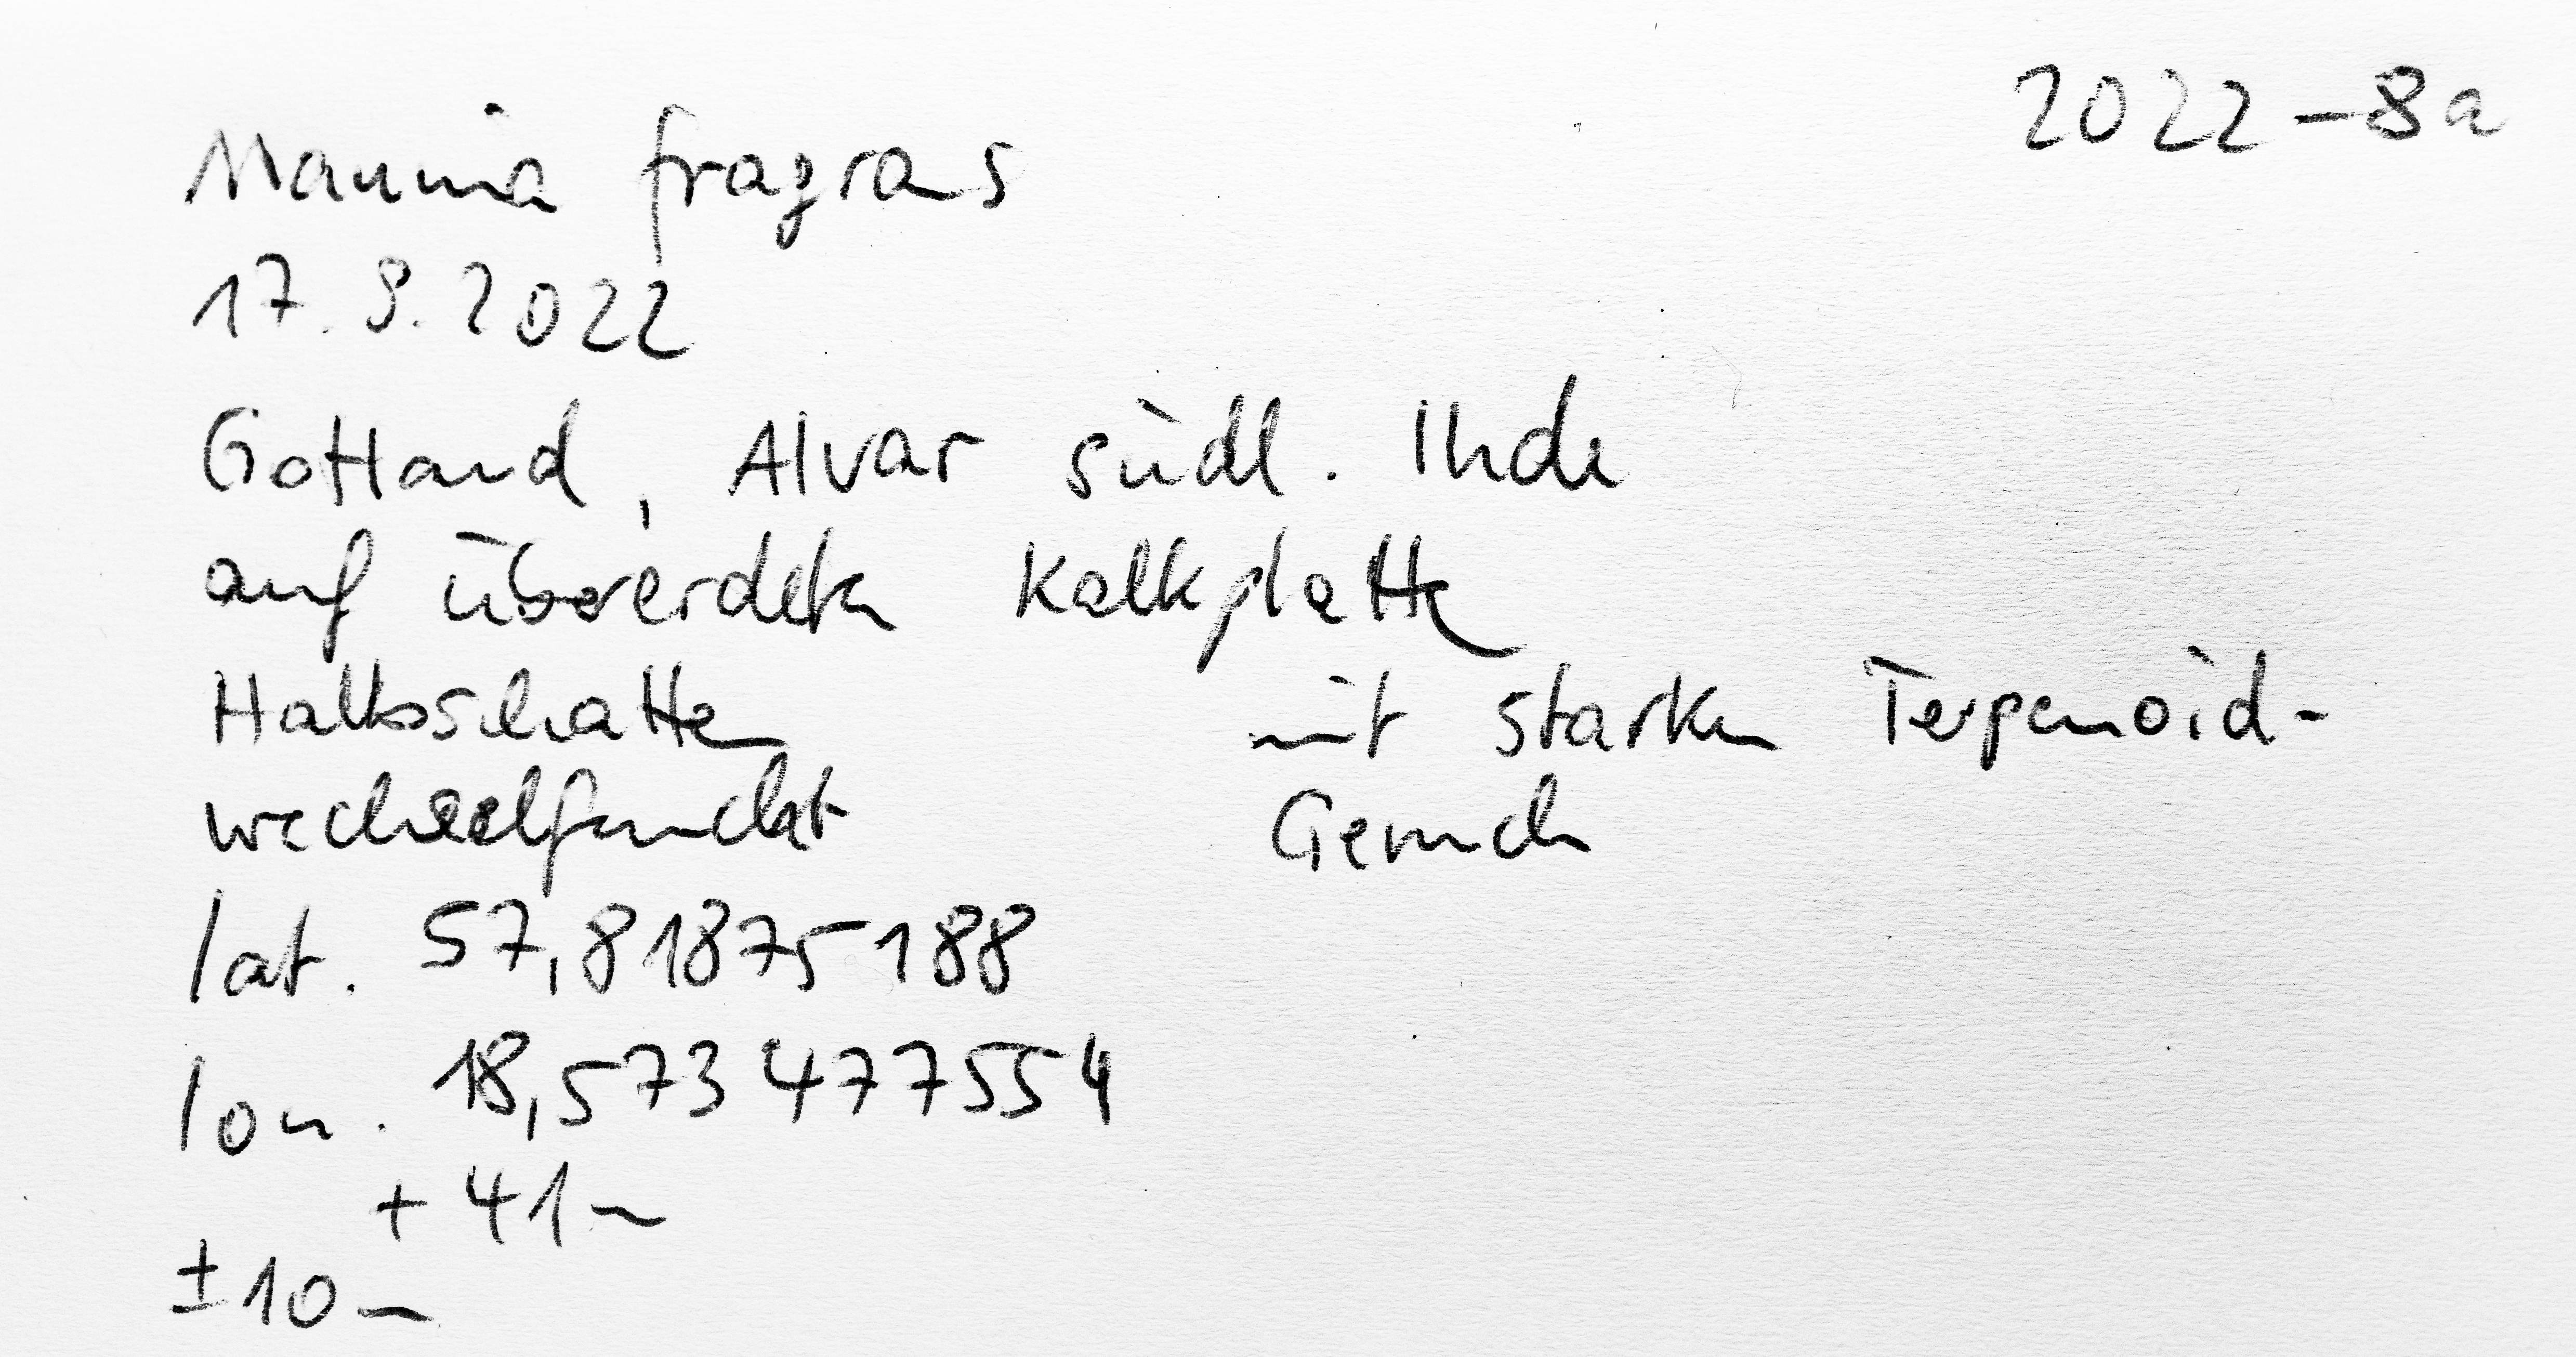 2022 – 8a
Mannia fragrans
17. 9. 2022
Gotland, Alvar südl. Ihde
auf übererdeter Kalkplatte
Halbschatten
wechselfeucht
mit starkem Terpenoid-
Geruch
lat. 57,81875188
lon. 18,573477554
+ 41 m
± 10 m